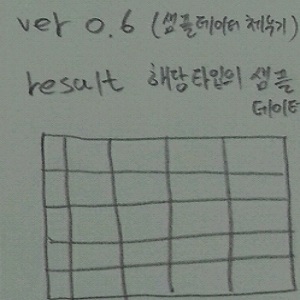 ver 0.6 (샘플데이터 채우기)
result 해당타입의 샘플
데이터